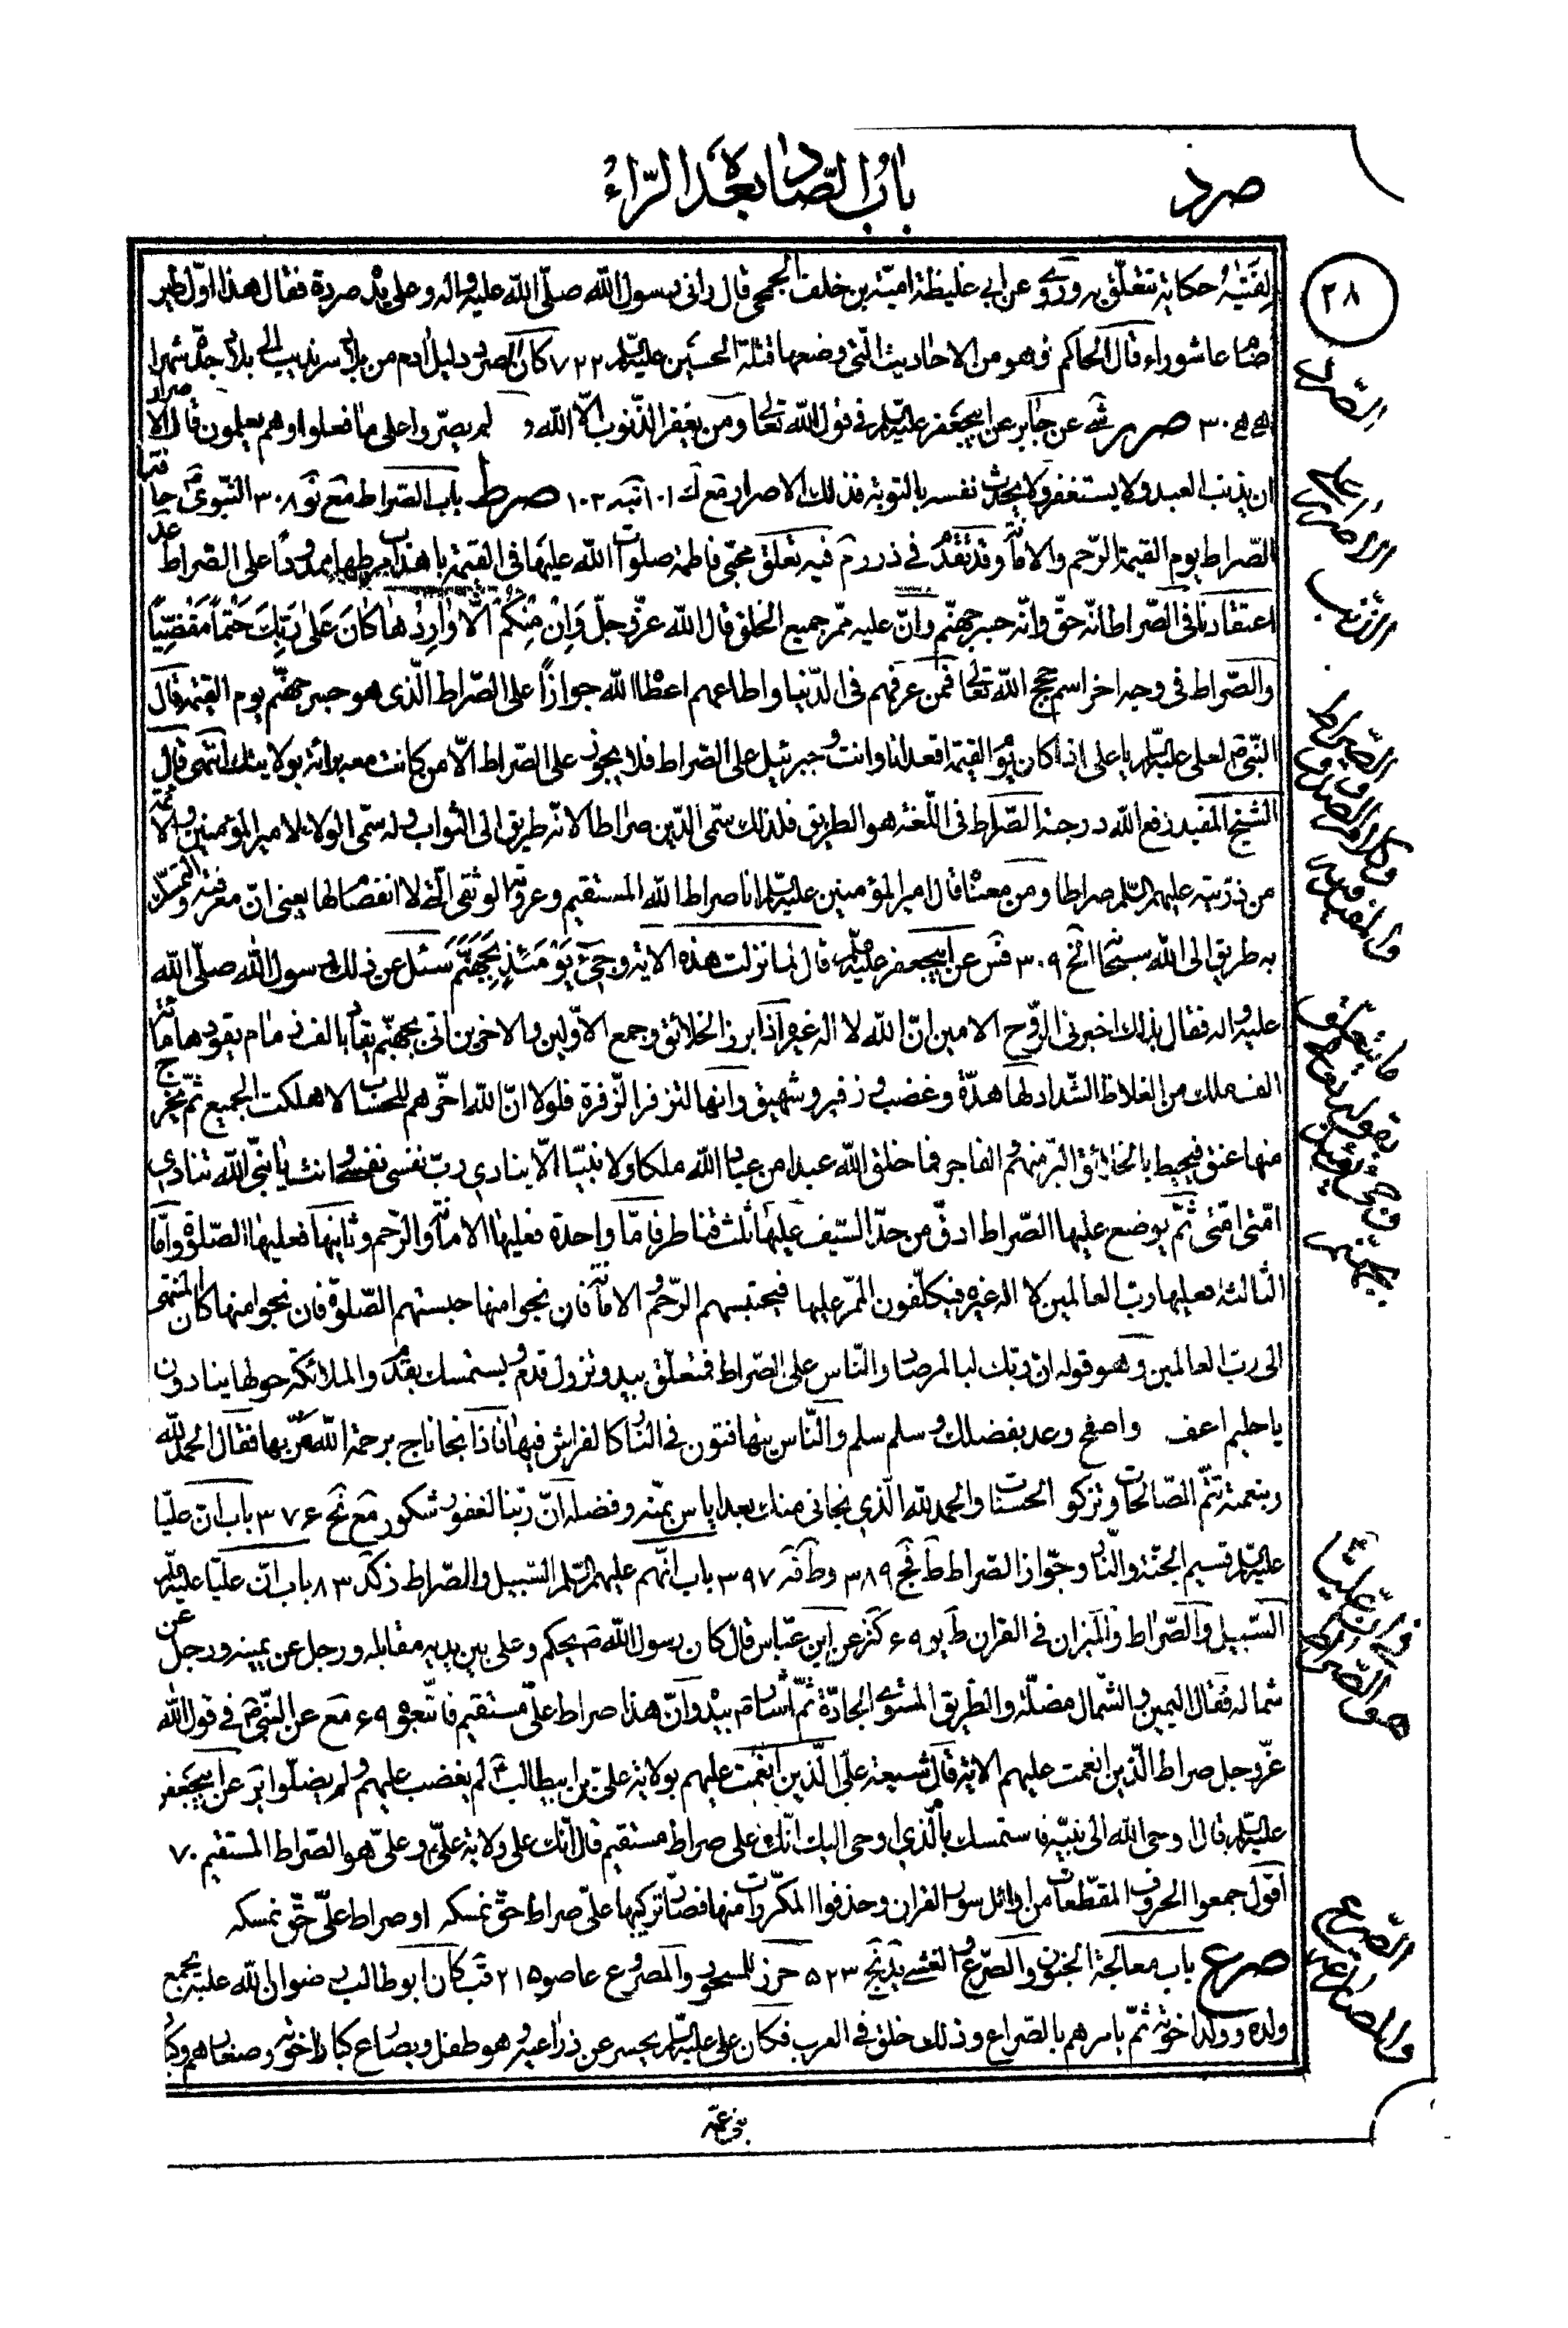 صرد
باب الصّاد بعده الرّاء
٢٨
لقتيبة حكاية تتعلّق به وروي عن ابي غليظة اميّة بن خلف الجمحي قال راني رسول الله صلّى الله عليه واله وعلى يدي صردة فقال هذا اوّل طير
صام عاشوراء قال الحاكم وهو من الاحاديث الّتي وضعها قتلة الحسين عليه السّلم ٧٢٢ كان الصرد دليل ادم من بلاد سرنديب الى بلاد جدّة شهرا
٣٠ صرر شى عن جابر عن ابيجعفر عليه السّلم في قول الله تعالى ومن يغفر الذّنوب الّا الله و لم يصرّوا على ما فعلوا وهم يعلمون قال الاصرار
ان يذنب العبد ولا يستغفر ولا يحدث نفسه بالتوبة فذلك الاصرار مع ك ١٠١ نبه ١٠٣ صرط باب الصّراط مع نو ٣٠٨ النّبوي حافتا
الصّراط يوم القيمة الرّحم والامانة وقد تقدّم في ذرر م فيه تعلّق محبّي فاطمة صلوات الله عليها في القيمة باهداب مرطها ممدودا على الصّراط عد
اعتقادنا في الصّراط انّه حقّ وانّه جسر جهنّم وانّ عليه ممرّ جميع الخلق قال الله عزّ وجلّ وَاِنْ مِنْكُمْ اِلّا وارِدُها كانَ عَلى رَبِّكَ حَتْماً مَقْضِيّاً
والصّراط في وجه اخر اسم حجج الله تعالى فمن عرفهم في الدّنيا واطاعهم اعطاه الله جوازاً على الصّراط الّذي هو جسر جهنّم يوم القيمة قال
النّبيّ ص لعلي عليه السّلم يا علي اذا كان يوم القيمة اقعد انا وانت وجبرئيل على الصّراط فلا يجوز على الصّراط الّا من كانت معه براءة بولايتك انتهى قال
الشيخ المفيد رفع الله درجته الصّراط في اللّغة هو الطريق فلذلك سمّى الدّين صراطا لانّه طريق الى الثواب وله سمّى الولاء لامير المؤمنين والائمّة
من ذرّيته عليهم السّلم صراطا ومن معناه قال امير المؤمنين عليه السّلم انا صراط الله المستقيم وعروته الوثقى الّتي لا انفصام لها يعني انّ معرفته والتمسّك
به طريق الى الله سبحانه الخ ٣٠٩ فس عن ابيجعفر عليه السّلم قال لمّا نزلت هذه الاية وجيء يَوْمَئِذٍ بِجَهَنَّمَ سئل عن ذلك رسول الله صلّى الله
عليه واله فقال بذلك اخبرني الرّوح الامين انّ الله لا اله غيره اذا برز الخلائق وجمع الاوّلين والاخرين اتى بجهنّم يقاد بالف زمام يقودها مائة
الف ملك من الغلاظ الشّداد لها هدّة وغضب وزفير وشهيق وانّها لتزفر الزّفرة فلولا انّ الله اخّرهم للحساب لاهلكت الجميع ثمّ يخرج
منها عنق فيحيط بالخلائق البرّ منهم والفاجر فما خلق الله عبدا من عباد الله ملكا ولا نبيّا الّا ينادي ربّ نفسي نفسي وانت يا نبيّ الله تنادي
امّتي امّتي ثمّ يوضع عليها الصّراط ادقّ من حدّ السّيف عليها ثلث قناطر فامّا واحدة فعليها الامانة والرّحم وثانيها فعليها الصّلوة وامّا
الثالثة فعليها ربّ العالمين لا اله غيره فيكلّفون الممرّ عليها فيحبسهم الرّحم والامانة فان نجوا منها حبستهم الصّلوة فان نجوا منها كان المنتهى
الى ربّ العالمين وهو قوله انّ ربّك لبالمرصاد والنّاس على الصّراط فمتعلّق بيد وتزول قدم ويستمسك بقدم والملائكة حولها ينادون
يا حليم اعف واصفح وعد بفضلك وسلم سلم والنّاس يتهافتون في النّار كالفراش فيها فاذا نجا ناج برحمة الله مرّ بها فقال الحمد لله
وبنعمته تتمّ الصّالحات وتزكو الحسنات والحمد لله الّذي نجاني منك بعد اياس بمنّه وفضله انّ ربّنا لغفور شكور مع نح ٣٧۶ باب انّ عليّا
عليه السّلم قسيم الجنّة والنّار وجواز الصّراط ط فج ٣٨٩ وط فد ٣٩٧ باب انّهم عليهم السّلم السّبيل والصّراط ز كد ٨٣ باب انّ عليّا عليه السّلم
السّبيل والصّراط والميزان في القران ط يو ۶٩ كنز عن ابن عبّاس قال كان رسول الله ص يحكم وعلي بين يديه مقابله ورجل عن يمينه ورجل عن
شماله فقال اليمين والشّمال مضلّة والطّريق المستوي الجادّة ثمّ اشار ص بيده وانّ هذا صراط علي مستقيم فاتّبعوه ۶٩ مع عن النّبي ص في قول الله
عزّ وجلّ صراط الّذين انعمت عليهم الاية قال شيعة علي الّذين انعمت عليهم بولاية علي بن ابيطالب لم يغضب عليهم ولم يضلّوا ير عن ابيجعفر
عليه السّلم قال اوحى الله الى نبيّه فاستمسك بالّذي اوحى اليك انّك على صراط مستقيم قال انّك على ولاية عليّ وعليّ هو الصّراط المستقيم ٧٠
اقول جمعوا الحروف المقطّعات من اوائل سور القران وحذفوا المكرّرات منها فصار تركيبها عليّ صراط حقّ نمسكه او صراط عليّ حقّ نمسكه
صرع باب معالجة الجنون والصّرع والغشي يد نج ٥٢٣ حرز للمسحور والمصروع عا صو ٢١٥ قب كان ابو طالب رضوان الله عليه يجمع
ولده وولد اخوته ثمّ يامرهم بالصّراع وذلك خلق في العرب فكان علي عليه السّلم يحسر عن ذراعيه وهو طفل ويصارع كبار اخوته وصغارهم وكبار
بني عمّه
الصّرد
الاصرار على
الذنب
الصّراط
وكلام الصدوق
والمفيد فيه
ما يتعلق
بقوله تعالى
وجيء يومئذ
بجهنم
في انّ عليّا
هو الصّراط
الصّرع
والمصارعة